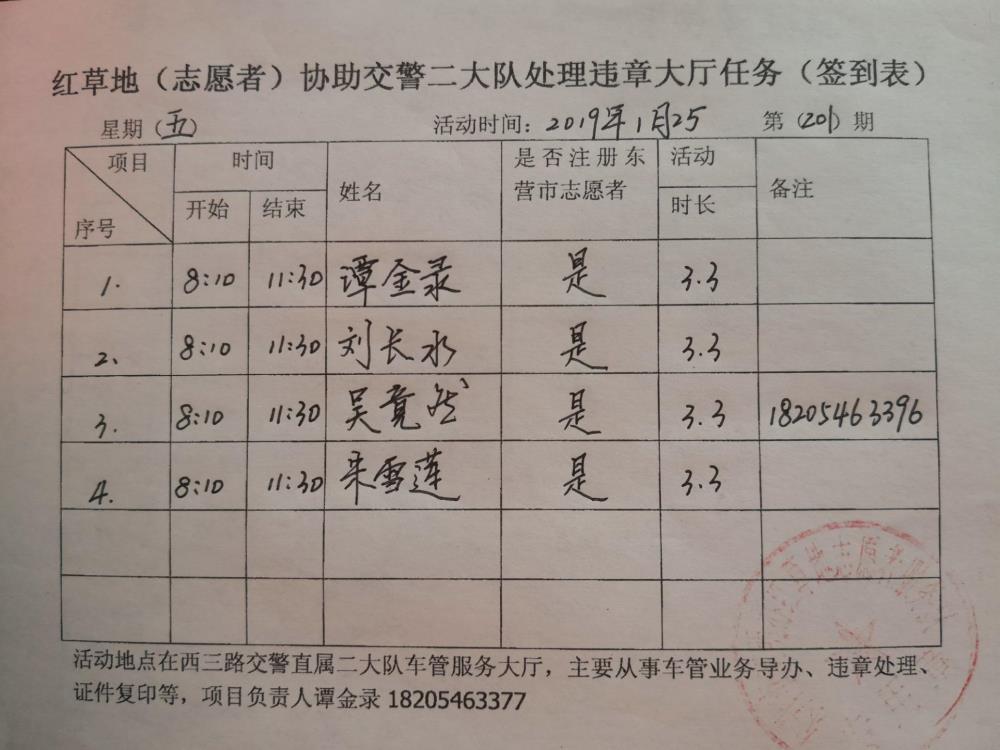 红草地（志愿者）协助交警二大队处理违章大厅任务（签到表）
星期（五） 活动时间：2019年1月25 第（201）期
项目 时间 姓名 是否注册东营市志愿者 活动时长 备注
序号 开始 结束
1. 8:10 11:30 谭金录 是 3.3
2、 8:10 11:30 刘长水 是 3.3
3. 8:10 11:30 吴竟然 是 3.3 18205463396
4. 8:10 11:30 朱雪莲 是 3.3
活动地点在西三路交警直属二大队车管服务大厅，主要从事车管业务导办、违章处理、
证件复印等，项目负责人谭金录 18205463377